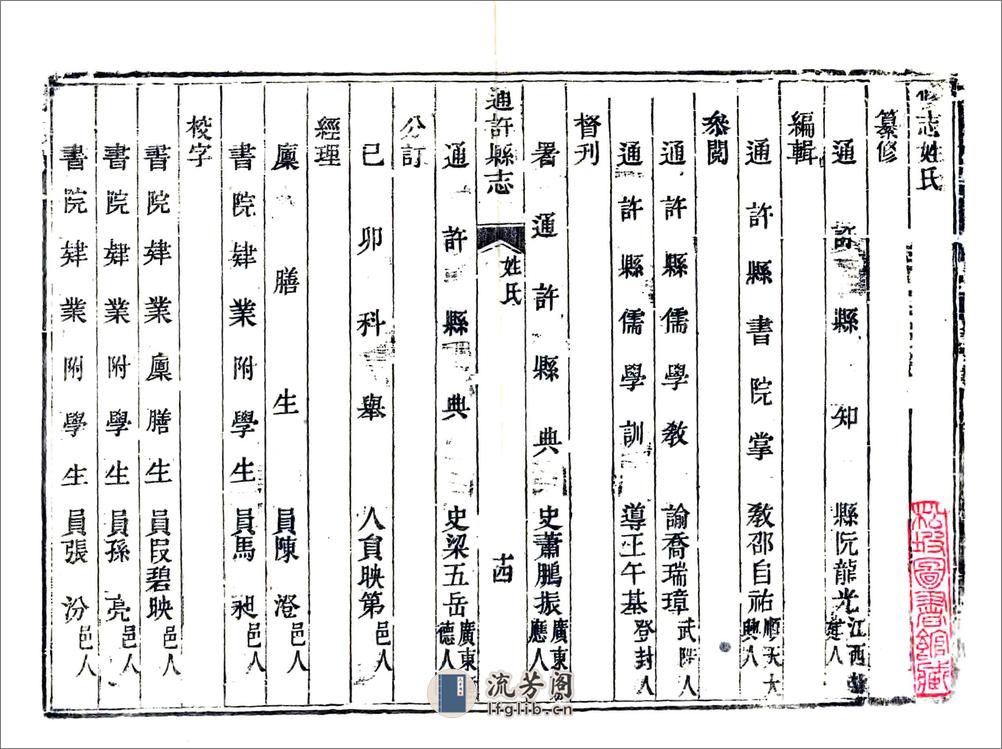 修志姓氏
纂修
通許縣知縣阮龍光江西
建人
編輯
通許縣書院掌教邵自祐順天大
興人
叅閱
通許縣儒學教諭喬瑞璋武陟人
通許縣儒學訓導王午基登封人
督刊
署通許縣典史蕭鵬振廣東
應人
通許縣志
姓氏
十四
通許縣典史梁五岳廣東
德人
公訂
己卯科舉人貟映第邑人
經理
廩膳生員陳澄邑人
書院肄業附學生員馬昶邑人
校字
書院肄業廩膳生員段碧映邑人
書院肄業附學生員孫亮邑人
書院肄業附學生員張汾邑人
松坡圖書館藏
流芳阁
lfglib.cn